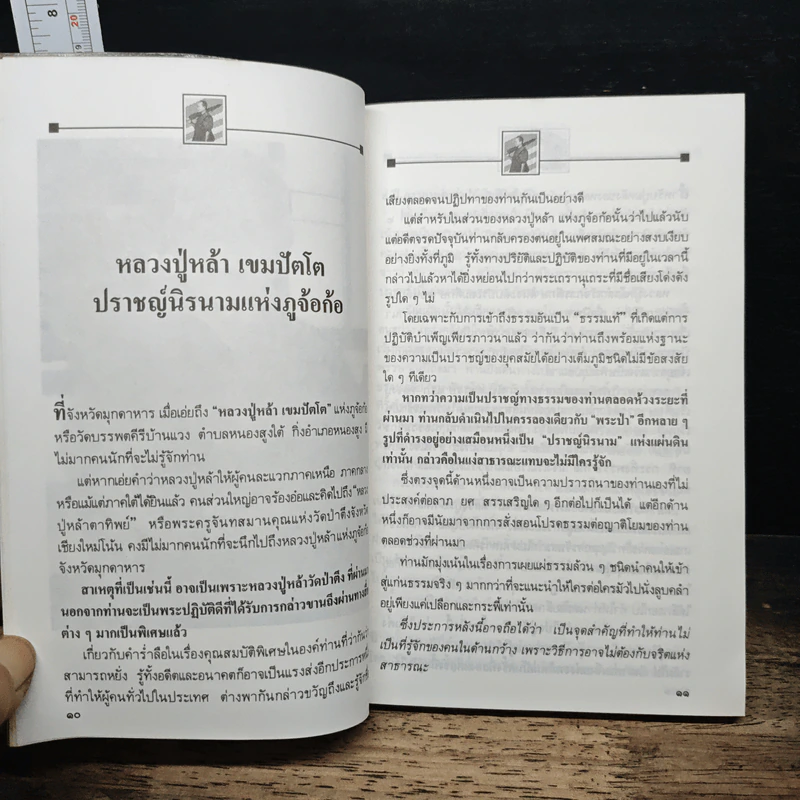 8
20
19
หลวงปู่หล้า เขมปัตโต
ปราชญ์นิรนามแห่งภูจ้อก้อ
ที่จังหวัดมุกดาหาร เมื่อเอ่ยถึง “หลวงปู่หล้า เขมปัตโต” แห่งภูจ้อก้อ
หรือวัดบรรพตคีรีบ้านแวง ตำบลหนองสูงใต้ กิ่งอำเภอหนองสูง
ไม่มากคนนักที่จะไม่รู้จักท่าน
แต่หากเอ่ยคำว่าหลวงปู่หล้าให้ผู้คนละแวกภาคเหนือ ภาคกลาง
หรือแม้แต่ภาคใต้ได้ยินแล้ว คนส่วนใหญ่อาจร้องอ๋อและคิดไปถึง “หลวง
ปู่หล้าตาทิพย์” หรือพระครูจันทสมานคุณแห่งวัดป่าตึงจังหวัด
เชียงใหม่โน้น คงมีไม่มากคนนักที่จะนึกไปถึงหลวงปู่หล้าแห่งภูจ้อก้อ
จังหวัดมุกดาหาร
สาเหตุที่เป็นเช่นนี้ อาจเป็นเพราะหลวงปู่หล้าวัดป่าตึง ที่ผ่านมา
นอกจากท่านจะเป็นพระปฏิบัติดีที่ได้รับการกล่าวขานถึงผ่านทางสื่อ
ต่าง ๆ มากเป็นพิเศษแล้ว
เกี่ยวกับคำร่ำลือในเรื่องคุณสมบัติพิเศษในองค์ท่านที่ว่ากันว่า
สามารถหยั่ง รู้ทั้งอดีตและอนาคตก็อาจเป็นแรงส่งอีกประการหนึ่ง
ที่ทำให้ผู้คนทั่วไปในประเทศ ต่างพากันกล่าวขวัญถึงและรู้จักชื่อ
๑๐
เสียงตลอดจนปฏิปทาของท่านกันเป็นอย่างดี
แต่สำหรับในส่วนของหลวงปู่หล้า แห่งภูจ้อก้อนั้นว่าไปแล้วนับ
แต่อดีตจรดปัจจุบันท่านกลับครองตนอยู่ในเพศสมณะอย่างสงบเงียบ
อย่างยิ่งทั้งที่ภูมิ รู้ทั้งทางปริยัติและปฏิบัติของท่านที่มีอยู่ในเวลานี้
กล่าวไปแล้วหาได้ยิ่งหย่อนไปกว่าพระเถรานุเถระที่มีชื่อเสียงโด่งดัง
รูปใด ๆ ไม่
โดยเฉพาะกับการเข้าถึงธรรมอันเป็น “ธรรมแท้” ที่เกิดแต่การ
ปฏิบัติบำเพ็ญเพียรภาวนาแล้ว ว่ากันว่าท่านถึงพร้อมแห่งฐานะ
ของความเป็นปราชญ์ของยุคสมัยได้อย่างเต็มภูมิชนิดไม่มีข้อสงสัย
ใด ๆ ทีเดียว
หากทว่าความเป็นปราชญ์ทางธรรมของท่านตลอดห้วงระยะที่
ผ่านมา ท่านกลับดำเนินไปในครรลองเดียวกับ “พระป่า” อีกหลาย ๆ
รูปที่ดำรงอยู่อย่างเสมือนหนึ่งเป็น “ปราชญ์นิรนาม” แห่งแผ่นดิน
เท่านั้น กล่าวคือในแง่สาธารณะแทบจะไม่มีใครรู้จัก
ซึ่งตรงจุดนี้ด้านหนึ่งอาจเป็นความปรารถนาของท่านเองที่ไม่
ประสงค์ต่อลาภ ยศ สรรเสริญใด ๆ อีกต่อไปก็เป็นได้ แต่อีกด้าน
หนึ่งก็อาจมีนัยมาจากการสั่งสอนโปรดธรรมต่อญาติโยมของท่าน
ตลอดช่วงที่ผ่านมา
ท่านมักมุ่งเน้นในเรื่องการเผยแผ่ธรรมล้วน ๆ ชนิดนำคนให้เข้า
สู่แก่นธรรมจริง ๆ มากกว่าที่จะแนะนำให้ใครต่อใครมัวไปนั่งลูบคลำ
อยู่เพียงแค่เปลือกและกระพี้เท่านั้น
ซึ่งประการหลังนี้อาจถือได้ว่า เป็นจุดสำคัญที่ทำให้ท่านไม่
เป็นที่รู้จักของคนในด้านกว้าง เพราะวิธีการอาจไม่ต้องกับจริตแห่ง
สาธารณะ
๑๑